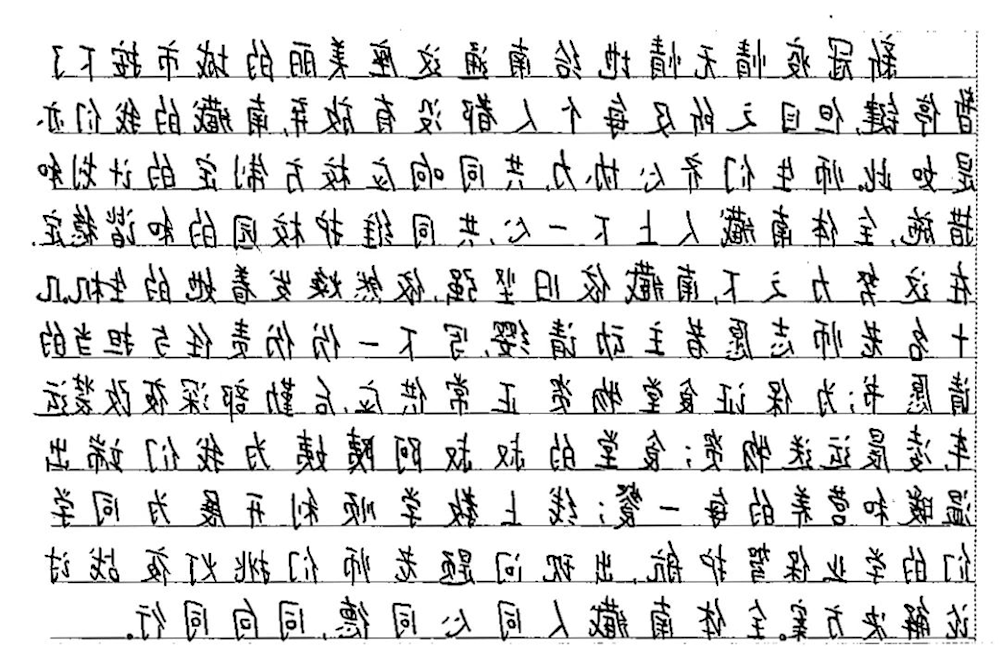 新冠疫情无情地给南通这座美丽的城市按下了
暂停键,但目之所及每个人都没有放弃,南藏的我们亦
是如此。师生们齐心协力,共同响应校方制定的计划和
措施,全体南藏人上下一心,共同维护校园的和谐稳定。
在这努力之下,南藏依旧坚强,依然焕发着她的生机。几
十名老师志愿者主动请缨,写下一份份责任与担当的
请愿书;为保证食堂物资正常供应,后勤部深夜改装运
车,凌晨运送物资;食堂的叔叔阿姨为我们端出
温暖和营养的每一餐;线上教学顺利开展为同学
们的学业保驾护航,出现问题老师们挑灯夜战讨
论解决方案。全体南藏人同心同德,同向同行。